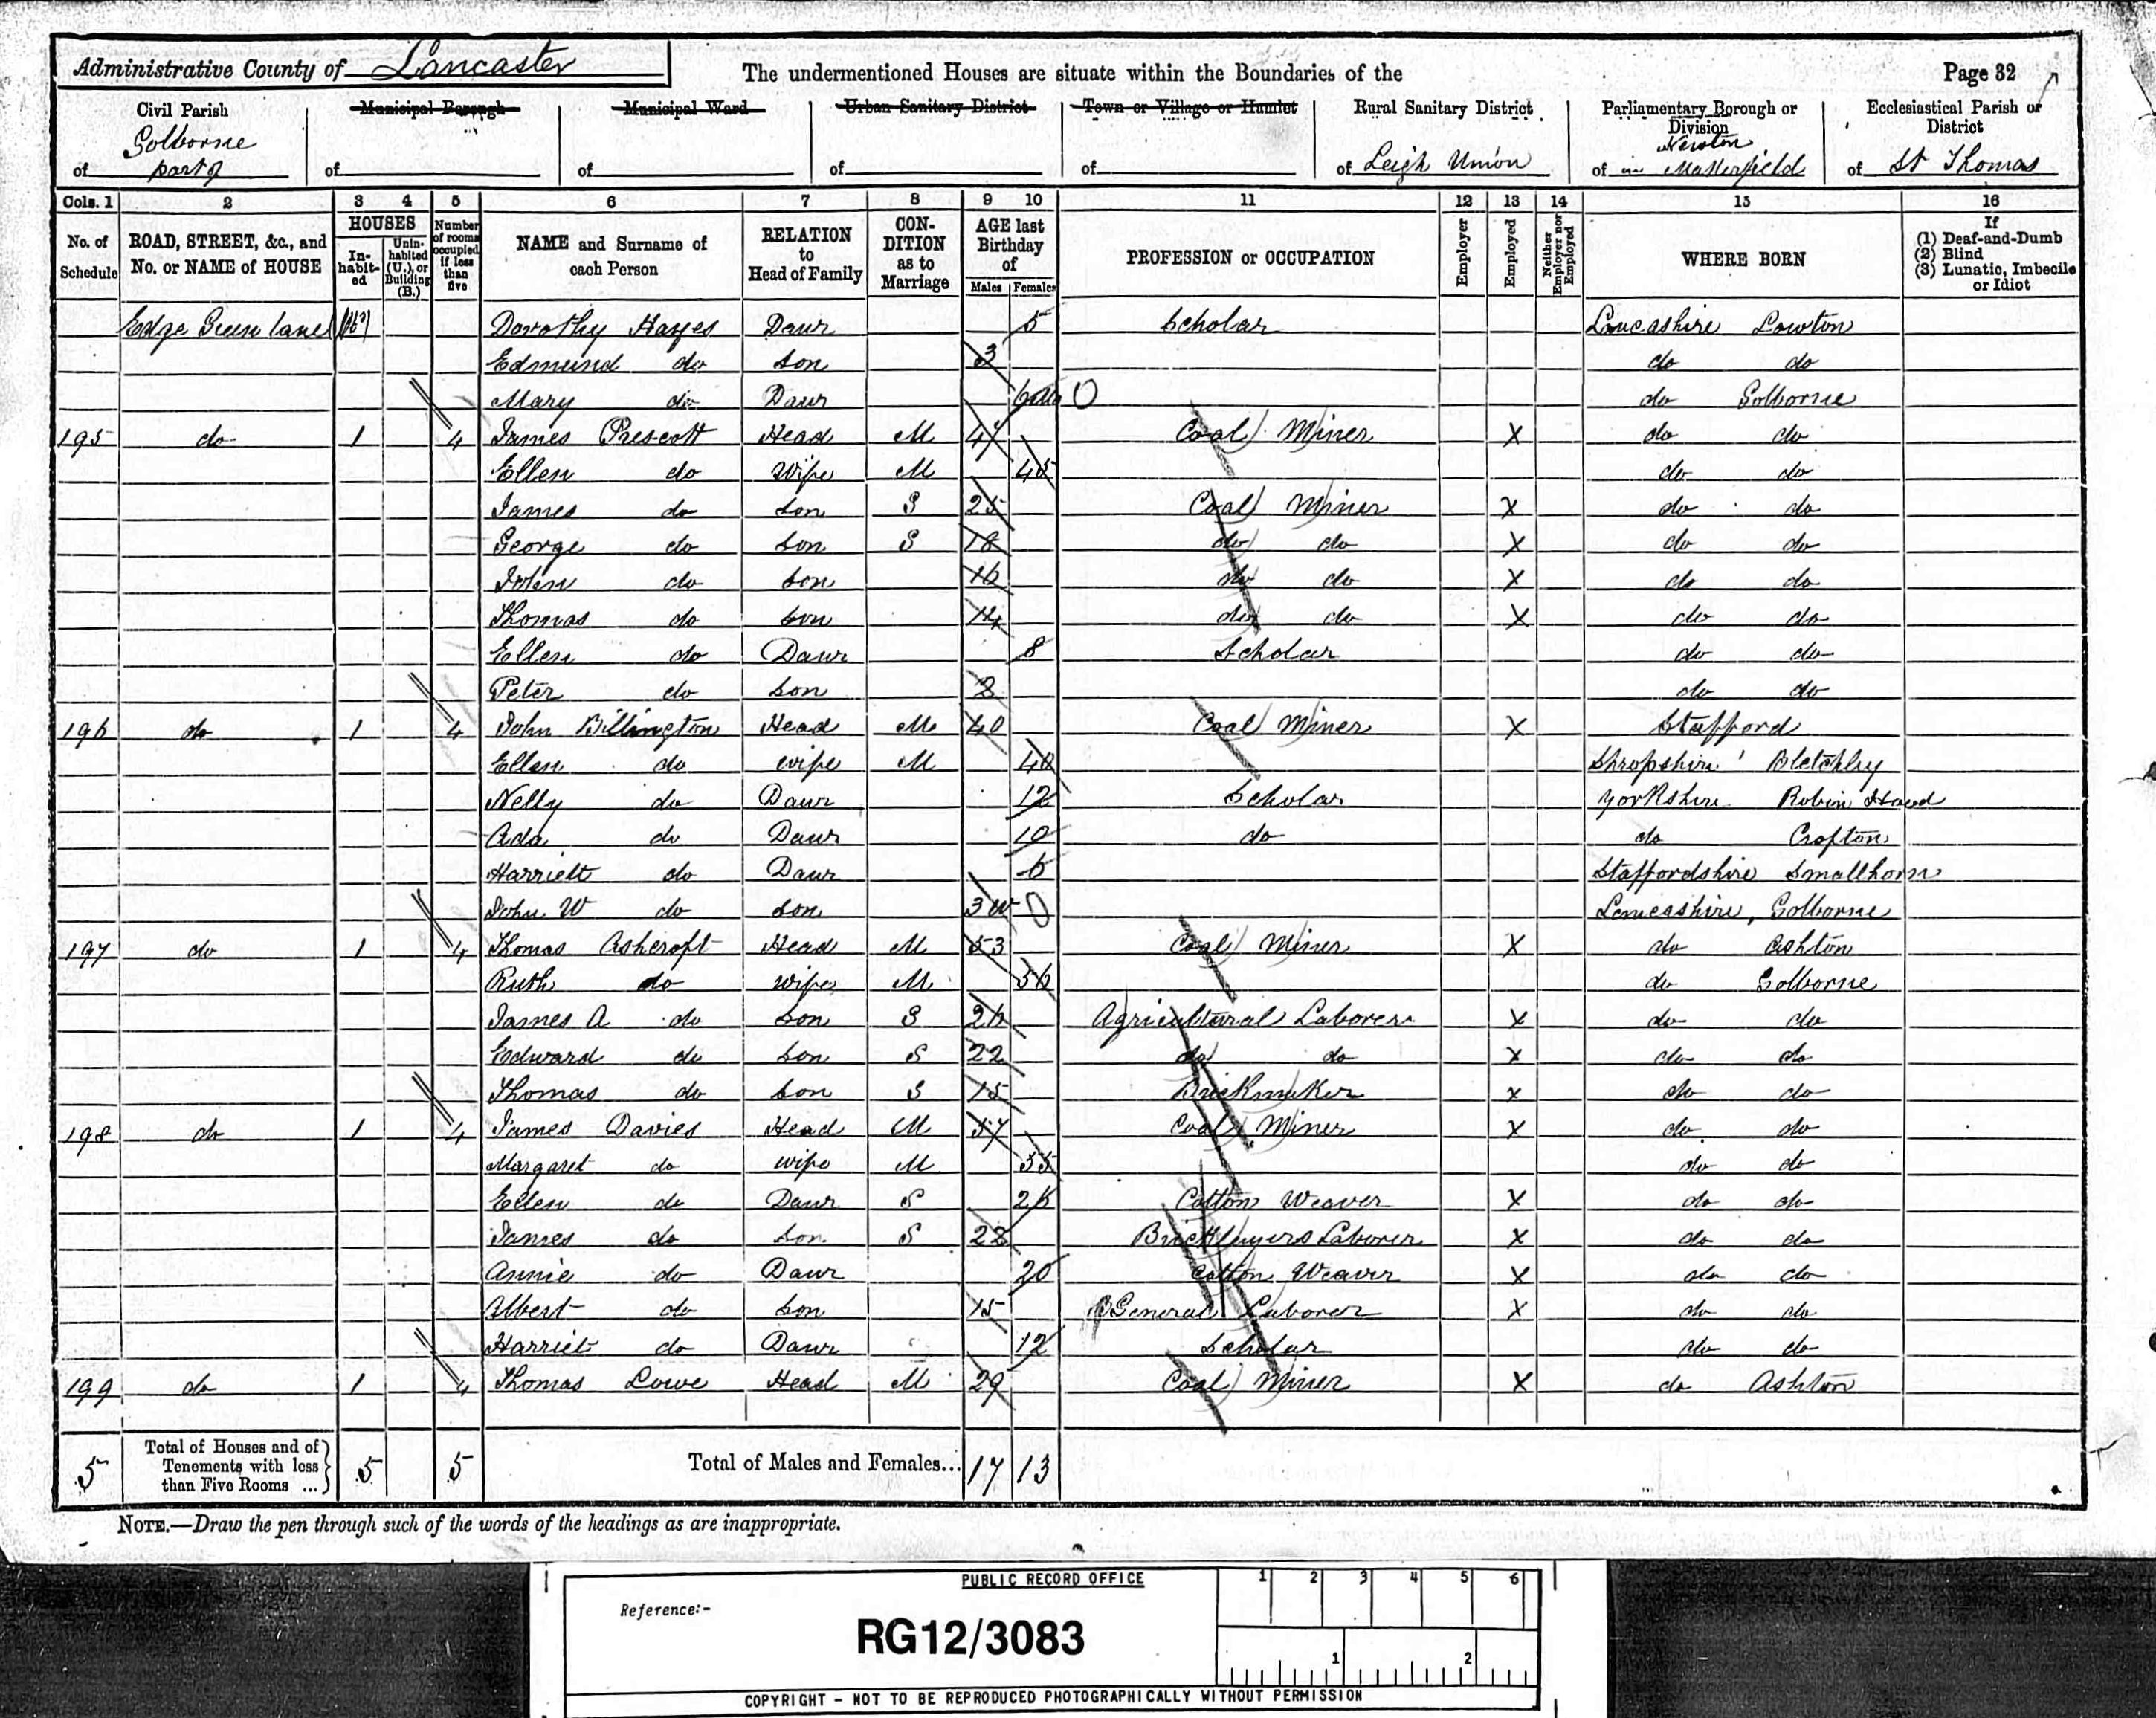 Administrative County of Lancaster The undermentioned Houses are situate within the Boundaries of the Page 32
Civil Parish Municipal Borough Municipal Ward Urban Sanitary District Town or Village or Hamlet Rural Sanitary District Parliamentary Borough or Division Ecclesiastical Parish or District
of Golborne part of of of of of of Leigh Union of Newton in Makerfield of St Thomas
Cols. 1 2 3 4 5 6 7 8 9 10 11 12 13 14 15 16
No. of Schedule ROAD, STREET, &c., and No. or NAME of HOUSE HOUSES In-habit-ed Unin-habited (U.), or Building (B.) Number of rooms occupied if less than five NAME and Surname of each Person RELATION to Head of Family CON-DITION as to Marriage AGE last Birthday of Males Females PROFESSION or OCCUPATION Employer Employed Neither Employer nor Employed WHERE BORN If (1) Deaf-and-Dumb (2) Blind (3) Lunatic, Imbecile or Idiot
Edge Green lane Dorothy Hayes Daur 5 Scholar Lancashire Lowton
Edmund do Son 3 do do
Mary do Daur 6 Mo do Golborne
195 do 1 4 James Prescott Head M 47 Coal Miner X do do
Ellen do Wife M 45 do do
James do Son S 25 Coal Miner X do do
George do Son S 18 do do X do do
John do Son 16 do do X do do
Thomas do Son 14 do do X do do
Ellen do Daur 8 Scholar do do
Peter do Son 2 do do
196 do 1 4 John Billington Head M 40 Coal Miner X Stafford
Ellen do Wife M 40 Shropshire Bletchley
Nelly do Daur 12 Scholar Yorkshire Robin Hood
Ada do Daur 10 do do Crofton
Harriett do Daur 6 Staffordshire Smallhorn
John W do Son 3 w Lancashire, Golborne
197 do 1 4 Thomas Ashcroft Head M 53 Coal Miner X do Ashton
Ruth do Wife M 56 do Golborne
James A do Son S 26 Agricultural Laborer X do do
Edward do Son S 22 do do X do do
Thomas do Son S 15 Brickmaker X do do
198 do 1 4 James Davies Head M 57 Coal Miner X do do
Margaret do Wife M 55 do do
Ellen do Daur S 26 Cotton Weaver X do do
James do Son S 22 Bricklayers Laborer X do do
Annie do Daur 20 Cotton Weaver X do do
Albert do Son 15 General Laborer X do do
Harriet do Daur 12 Scholar do do
199 do 1 4 Thomas Lowe Head M 29 Coal Miner X do Ashton
5 Total of Houses and of Tenements with less than Five Rooms ... 5 5 Total of Males and Females... 17 13
NOTE.—Draw the pen through such of the words of the headings as are inappropriate.
PUBLIC RECORD OFFICE 1 2 3 4 5 6
Reference:-
RG12/3083
1 2
COPYRIGHT - NOT TO BE REPRODUCED PHOTOGRAPHICALLY WITHOUT PERMISSION